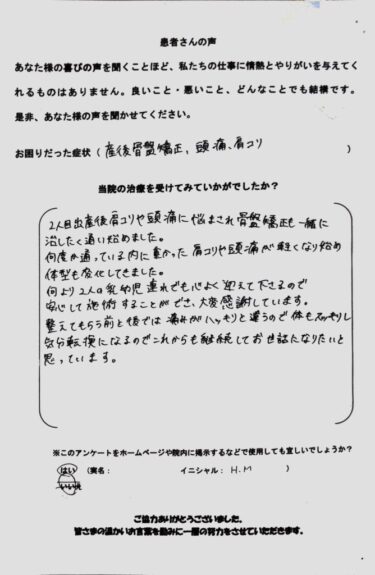 患者さんの声
あなた様の喜びの声を聞くことほど、私たちの仕事に情熱とやりがいを与えてく
れるものはありません。良いこと・悪いこと、どんなことでも結構です。
是非、あなた様の声を聞かせてください。
お困りだった症状（産後骨盤矯正, 頭痛、肩コリ）
当院の治療を受けてみていかがでしたか？
2人目出産後肩コリや頭痛に悩まされ骨盤矯正も一緒に
治したく通い始めました。
何度か通っている内に重かった肩コリや頭痛が軽くなり始め
体型も変化してきました。
何より2人の乳幼児連れでも心よく迎えて下さるので
安心して施術することができ、大変感謝しています。
整えてもらう前と後では痛みがハッキリと違うので体もスッキリし
気分転換になるのでこれからも継続してお世話になりたいと
思っています。
※このアンケートをホームページや院内に掲示するなどで使用しても宜しいでしょうか？
はい（実名： イニシャル：H.M）
いいえ
ご協力ありがとうございました。
皆さまの温かいお言葉を励みに一層の努力をさせていただきます。